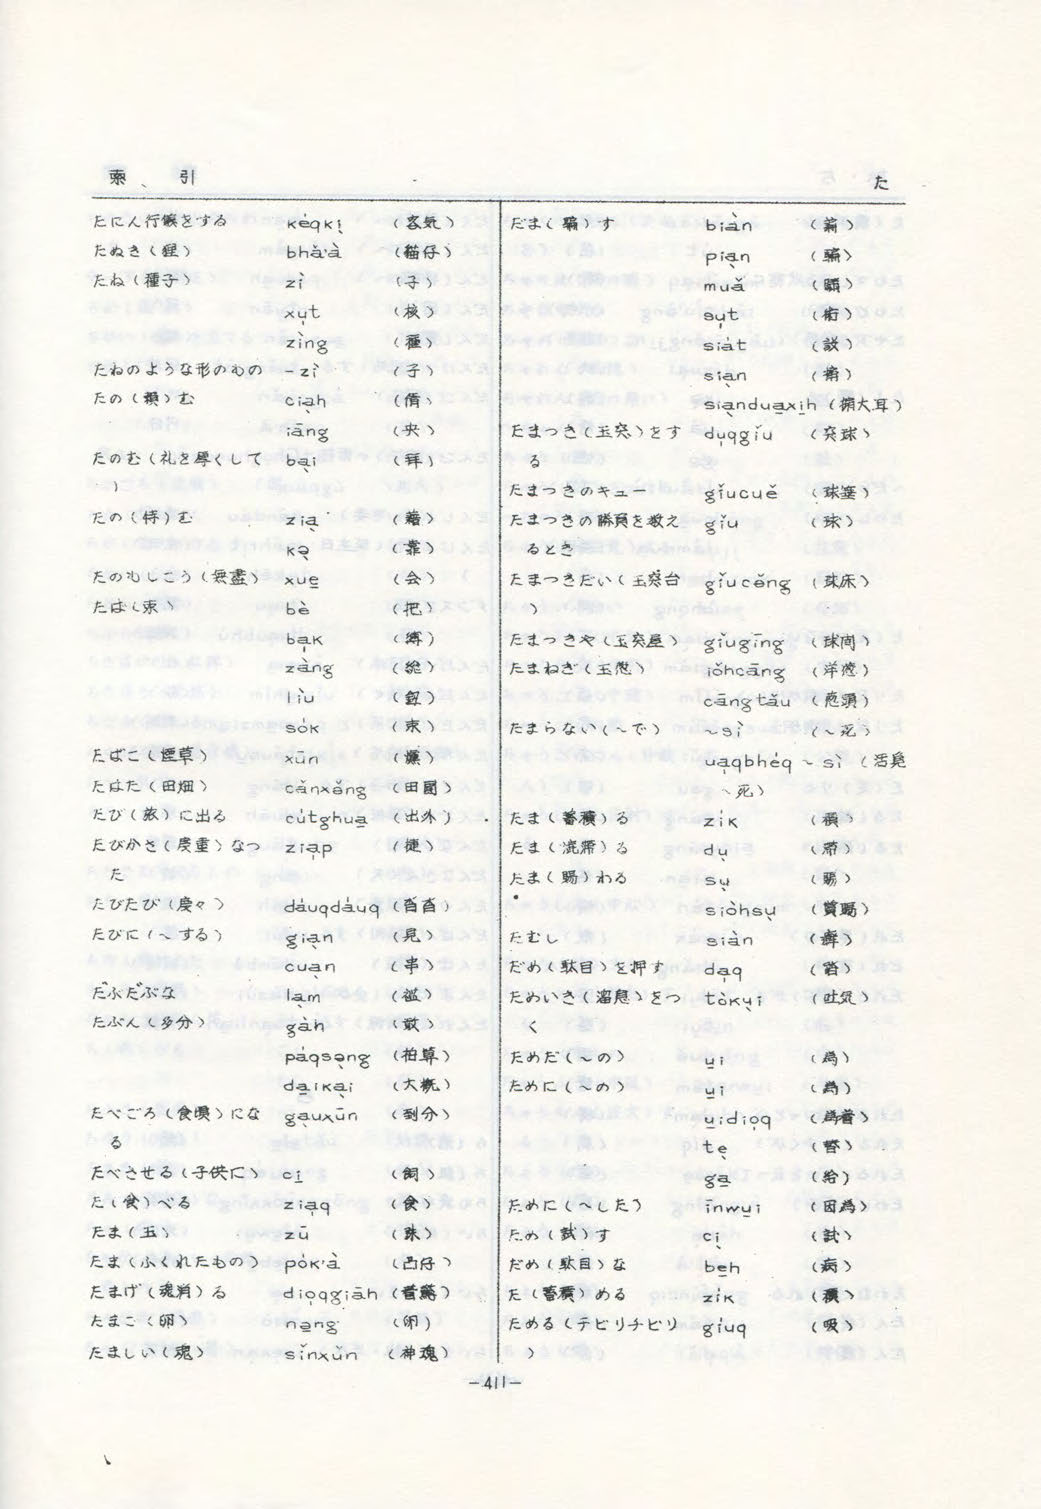 索引
た
たにん行儀をする kéqkị (客気)
たぬき(狸) bhǎ'à (猫仔)
たね(種子) zì (子)
xụt (核)
zìng (種)
たねのような形のもの -zì (子)
たの(頼)む ciạh (倩)
iāng (央)
たのむ(礼を厚くして bại (拜)
)
たの(恃)む ziạ (藉)
kə̣ (靠)
たのもしこう(無盡) xue̱ (会)
たば(束) bè (把)
bạk (縛)
zǎng (總)
liù
sók (束)
たばこ(煙草) xūn (燻)
たはた(田畑) cǎnxə̌ng (田園)
たび(旅)に出る cútghua̱ (出外)
たびかさ(度重)なっ ziạp (捷)
た
たびたび(度々) dáuqdáuq
たびに(〜する) giạn (見)
cuạn (串)
だぶだぶな lạm
たぶん(多分) gàh (敢)
páqsə̣ng (柏算)
da̱ikại (大概)
たべごろ(食頃)にな gạuxūn (到分)
る
たべさせる(子供に) ci̱ (飼)
た(食)べる ziạq (食)
たま(玉) zū (珠)
たま(ふくれたもの) pók'à (凸仔)
たまげ(魂消)る diọqgiāh (着驚)
たまご(卵) na̱ng (卵)
たましい(魂) sǐnxǔn (神魂)
だま(騙)す biàn (諞)
piạn (騙)
muǎ
sụt
siát (設)
siạn
siạnduaxi̱h
たまつき(玉突)をす dụqgǐu (突球)
る
たまつきのキュー gǐucuě (球箠)
たまつきの勝負を数え gǐu (球)
るとき
たまつきだい(玉突台 gǐucə̌ng (球床)
)
たまつきや(玉突屋) gǐugīng (球間)
たまねぎ(玉葱) iǒhcāng (洋葱)
cāngtǎu (葱頭)
たまらない(〜で) 〜sì (〜死)
uạqbhéq〜sì (活覓
〜死)
たま(蓄積)る zík (積)
たま(混滞)る dụ
たま(賜)わる sụ (賜)
siòhsụ (賞賜)
たむし siàn (癬)
だめ(駄目)を押す dạq (踏)
ためいき(溜息)をつ tòkụi (吐気)
く
ためだ(〜の) u̱i (為)
ために(〜の) u̱i (為)
u̱idiọq (為着)
tẹ (替)
ga̱ (給)
ために(〜した) īnwu̱i (因為)
ため(試)す cị (試)
だめ(駄目)な be̱h (病)
た(蓄積)める zík (積)
ためる(チビリチビリ gíuq (吸)
)
-411-